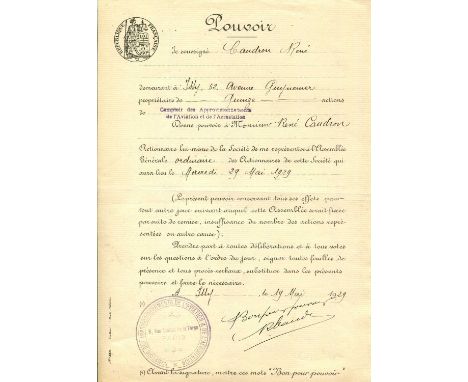 RÉPUBLIQUE FRANÇAISE
Pouvoir
Je soussigné Caudron René
demeurant à Issy, 52, Avenue Guynemer
propriétaire de — Quinze — actions
de Comptoir des Approvisionnements
de l'Aviation et de l'Aérostation
Donne pouvoir à Monsieur René Caudron
Actionnaire lui-même de la Société de me représenter à l'Assemblée
Générale ordinaire des Actionnaires de cette Société qui
aura lieu le Mercredi 29 Mai 1929
(Le présent pouvoir conservant tous ses effets pour
tout autre jour suivant auquel cette Assemblée serait fixée
par suite de remise, insuffisance du nombre des actions repré-
sentées ou autre cause).
Prendre part à toutes délibérations et à tous votes
sur les questions à l'ordre du jour, signer toutes feuilles de
présence et tous procès-verbaux, substituer dans les présents
pouvoirs et faire le nécessaire.
A Issy, le 19 Mai 1929
(1) Bon pour pouvoir
PARIS
(1) Avant la signature, mettre ces mots "Bon pour pouvoir"